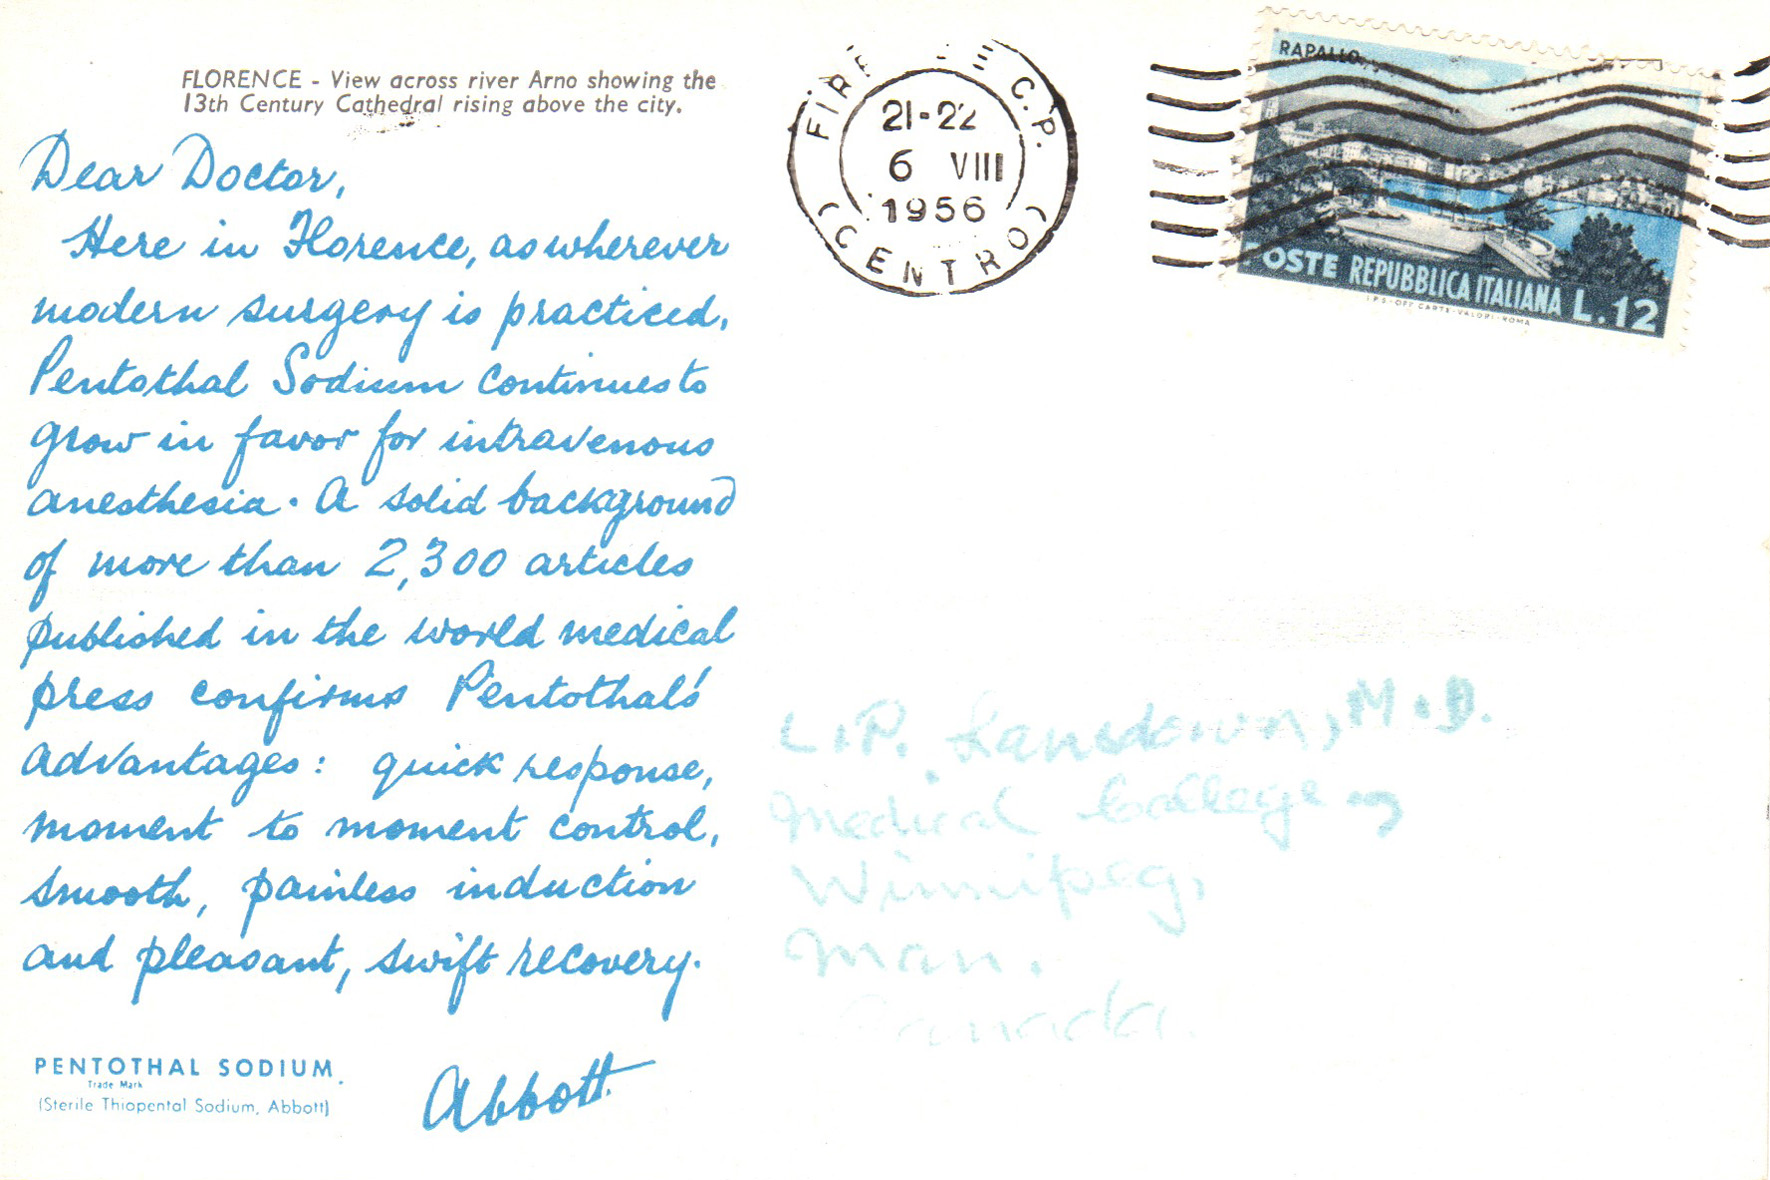 FLORENCE - View across river Arno showing the
13th Century Cathedral rising above the city.
Dear Doctor,
Here in Florence, as wherever
modern surgery is practiced,
Pentothal Sodium continues to
grow in favor for intravenous
anesthesia. A solid background
of more than 2,300 articles
published in the world medical
press confirms Pentothal's
advantages: quick response,
moment to moment control,
smooth, painless induction
and pleasant, swift recovery.
PENTOTHAL SODIUM
Trade Mark
(Sterile Thiopental Sodium, Abbott)
Abbott
C.P.
21-22
6 VIII
1956
(CENTRO)
RAPALLO
POSTE REPUBBLICA ITALIANA L.12
I.P.S-OFF. CARTE-VALORI-ROMA
L.P. Lansdown, M.D.
Medical College,
Winnipeg,
Man.
Canada.